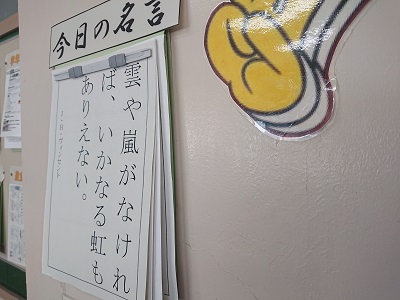 今日の名言
雲や嵐がなけれ
ば、いかなる虹も
ありえない。
J.H.ヴィンセント